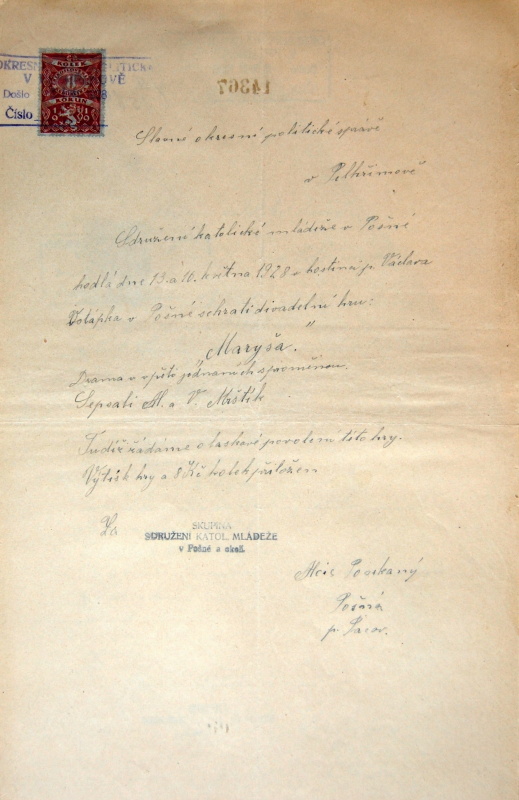 OKRESN LITICK
V OVĚ
Došlo 8
Číslo
KOLEK
1
KORUN
14367
Slavné okresní politické správě
v Pelhřimově
Sdružení katolické mládeže v Pošné
hodlá dne 13. a 10. května 1928 v hostinci p. Václava
Votápka v Pošné sehrati divadelní hru:
"Maryša."
Drama v v pěti jednáních s proměnou.
Sepsali M. a V. Mrštík
Tudíž žádáme o laskavé povolení této hry.
Výtisk hry a 8 Kč kolek přiložen
Za
SKUPINA
SDRUŽENÍ KATOL. MLÁDEŽE
v Pošné a okolí.
Pošná
p. Pacov.